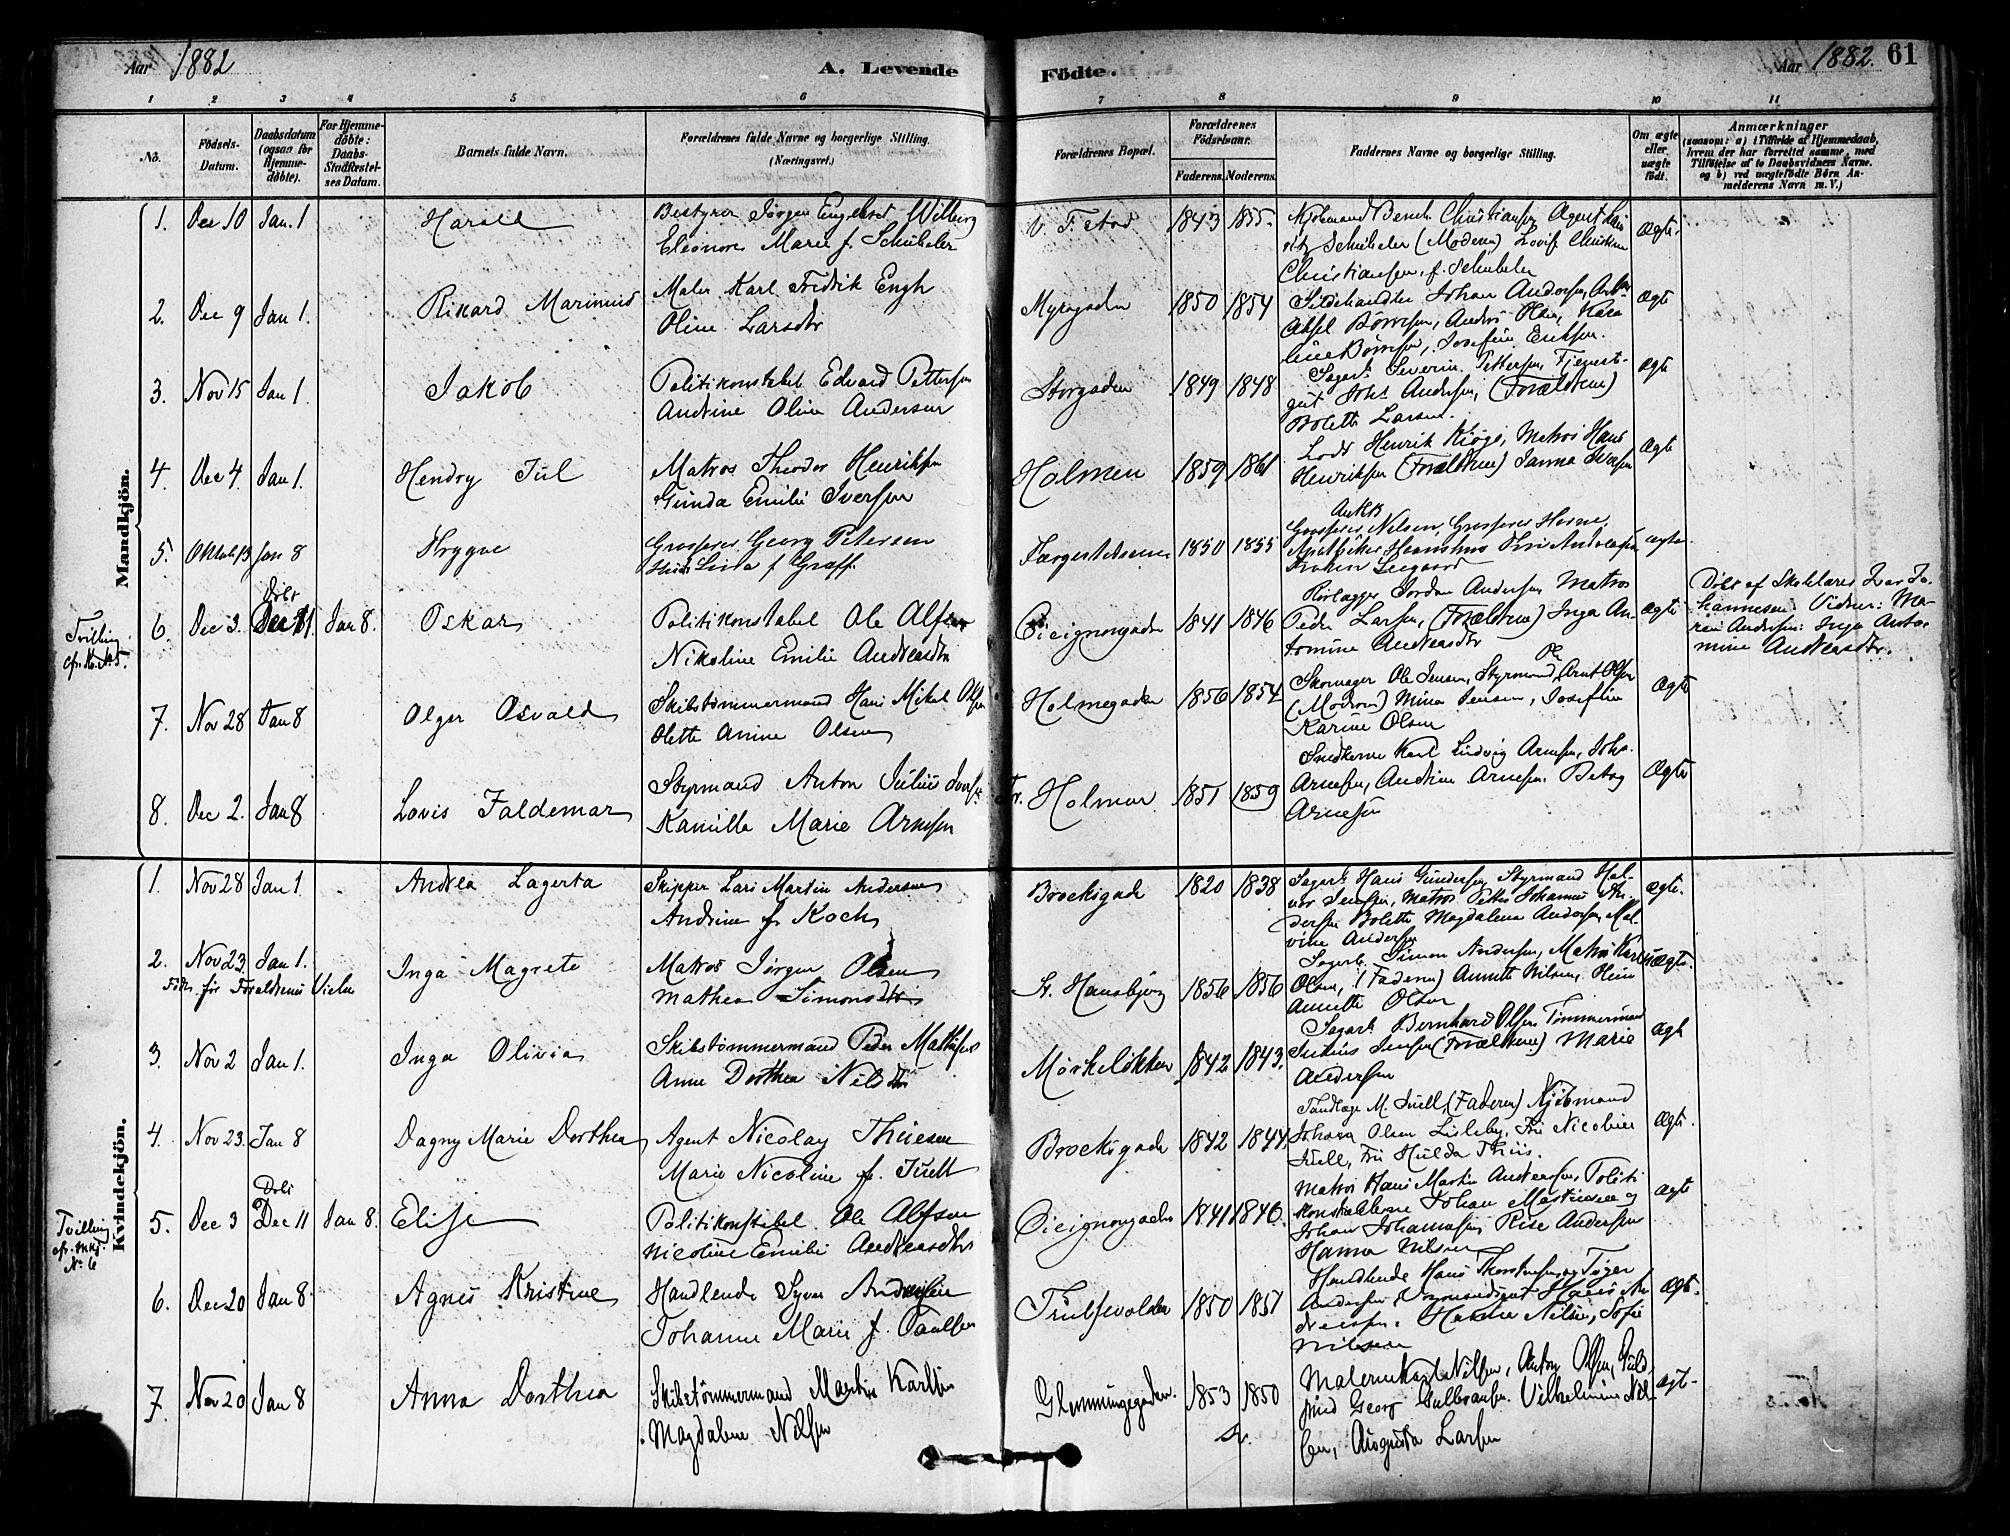 Aar 1882
A. Levende
Födte.
Aar 1882.
61
1 2 3 4 5 6 7 8 9 10 11
No.
Födsels-Datum.
Daabsdatum (ogsaa for Hjemme-döbte).
For Hjemme-döbte: Daabs-Stadfæstel-ses Datum.
Barnets fulde Navn.
Forældrenes fulde Navne og borgerlige Stilling.
(Næringsvei.)
Forældrenes Bopæl.
Forældrenes Födselsaar.
Faderens. Moderens.
Faddernes Navne og borgerlige Stilling.
Om ægte eller uægte födt.
Anmærkninger
(saasom: a) i Tilfælde af Hjemmedaab,
hvem der har forrettet samme, med
Tilföielse af to Daabsvidners Navne.
og b) ved uægtefödte Börn An-
melderens Navn m. V.)
Mandkjön.
1. Dec 10 Jan. 1 Harald
Bestyrer Jørgen Engebret Wilberg
Eleonore Marie f. Schübeler
V. Fstad 1843 1855
Kjøbmand Bernh. Christiansen Agent
Schübeler (Moderen)
Christiansen f. Schübeler
Ægte.
2. Dec 9 Jan 1. Rikard Marinius
Maler Karl Fredrik Engh
Oline Larsdtr
Myragaden 1850 1854
Sildehandler Johan Andersen
Aksel Børresen, Anders Olsen, Karo
line Børresen, Josefine Eriksen.
Ægte
3. Nov 15 Jan 1. Jakob
Politikonstabel Edvard Pettersen
Andrine Oline Andersen
Storgaden 1849 1848
Sagarb. Severin Pettersen, Tjenest-
gut Johs Andersen, (Forældrene)
Bolette Larsen.
Ægte
4. Dec 4. Jan 1. Hendry Jul
Matros Theodor Henriksen
Gunda Emilie Iversen
Holmen 1859 1861
Lods Henrik Kjøge, Matros Hans
Henriksen (Forældrene) Janna Iversen
Ægte
5. Oktob 13 Jan 8 Trygve
Grosserer Georg Petersen
Lina f Graff
Færgestedsveien 1850 1855
Grosserer Nilsen, Grosserer Horne,
Apotheker
Ægte
Tvilling
cfr. Kv. No 5.
6. Dec 3. Döbt Dec 11. Jan 8. Oskar
Politikonstabel Ole Alfsen
Nikoline Emilie Andreasdtr
Oicignongaden 1841 1846
Rørlægger Jordan Andersen Matros
Peder Larsen, (Forældrene) Inga An-
tomine Andreasdtr
Ægte
Döbt af Skolelærer Lars Jo-
hannesen. Vidner: Ma-
ren Andersen: Inga Anto-
mine Andreasdtr.
7. Nov 28 Jan 8 Olger Osvald
Skibstømmermand Hans Mikal Olsen
Olette Anine Olsen
Holmegaden 1856 1854
Skomager Ole Jensen, Styrmand Arnt Olsen
(Moderen) Mina Jensen, Josefine
Karine Olsen
Ægte
8. Dec 2. Jan 8 Lovis Valdemar
Styrmand Anton Julius Iversen
Kamilla Marie Arnesen
Holmen 1857 1859
Snedkerne Karl Ludvig Arnesen, Johs.
Arnesen, Andrine Arnesen. Betsy
Arnesen
Ægte
Kvindekjön.
1. Nov 28 Jan 1. Andrea Lagerta
Skipper Lars Martin Andersen
Andrine f. Koch
Brocksgade 1820 1838
Sagarb. Hans Gundersen, Styrmand Hal-
vor Jensen, Matros Petter Johannes An-
dersen Bolette Magdalena Andersen, Mal-
vine Andersen
Ægte.
2. Nov 23. Jan 1. Inga Magrete
Født før Forældrenes Vielse
Matros Jørgen Olsen
Mathea Simonsdtr
St. Hansbjerg 1856 1856
Sagarb. Simon Andersen, Matros Karl
Olsen, (Faderen) Annette Nilsen,
Annette Olsen
Uægte.
3. Nov 2 Jan 1. Inga Olivia
Skibstømmermand Peder Mathisen
Anne Dorthea Nilsdtr
Mørkeløkken 1842 1843.
Sagarb. Bernhard Olsen Tømmermand
Julius Jensen (Forældrene) Marie
Andersen
Ægte
4. Nov 23. Jan 8 Dagny Marie Dorthea
Agent Nicolay Thiesen
Marie Nicoline f. Juell
Brocksgade 1842 1844.
Tandlæge M. Juell, (Faderen) Kjøbmand
Johan Olsen Lisleby, Fru Nicoline
Juell, Fru Hulda Thiis.
Ægte.
Tvilling
cfr. Mkj.
No 6
5. Dec 3 Döbt Dec 11 Jan 8. Elise
Politikonstabel Ole Alfsen
Nicoline Emilie Andreasdtr
Oicignongaden 1841 1846.
Matros Hans Martin Andreasen, Politi
konstablerne Johan Mathiesen og
Johan Johannesen, Rise Andersen
Hanna Nilsen
Ægte
6. Dec 20 Jan 8. Agnes Kristine
Handlende Syver Andersen
Johanne Marie f. Paulsen
Trulsevolden 1850 1857
Handlende Hans Thorstensen og Tøger
Andersen
Nilsen, Sofie
Nilsen
Ægte.
7. Nov 20 Jan 8 Anna Dorthea
Skibstømmermand Martin Karlsen
Magdalene Nilsen
Glemmingegaden. 1853 1850
Malerne Karl Nilsen, Anton Olsen, Guld
smed Georg Gulbransen. Vilhelmine Nil
sen, Augusta Larsen
Ægte